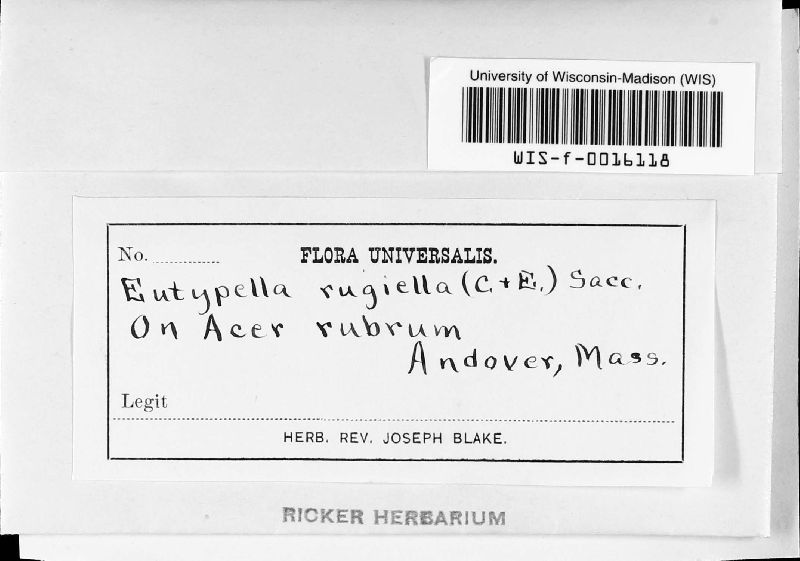 University of Wisconsin-Madison (WIS)
WIS-f-0016118
No.
FLORA UNIVERSALIS.
Eutypella rugiella (C. + E.) Sacc.
On Acer rubrum
Andover, Mass.
Legit
HERB. REV. JOSEPH BLAKE.
RICKER HERBARIUM